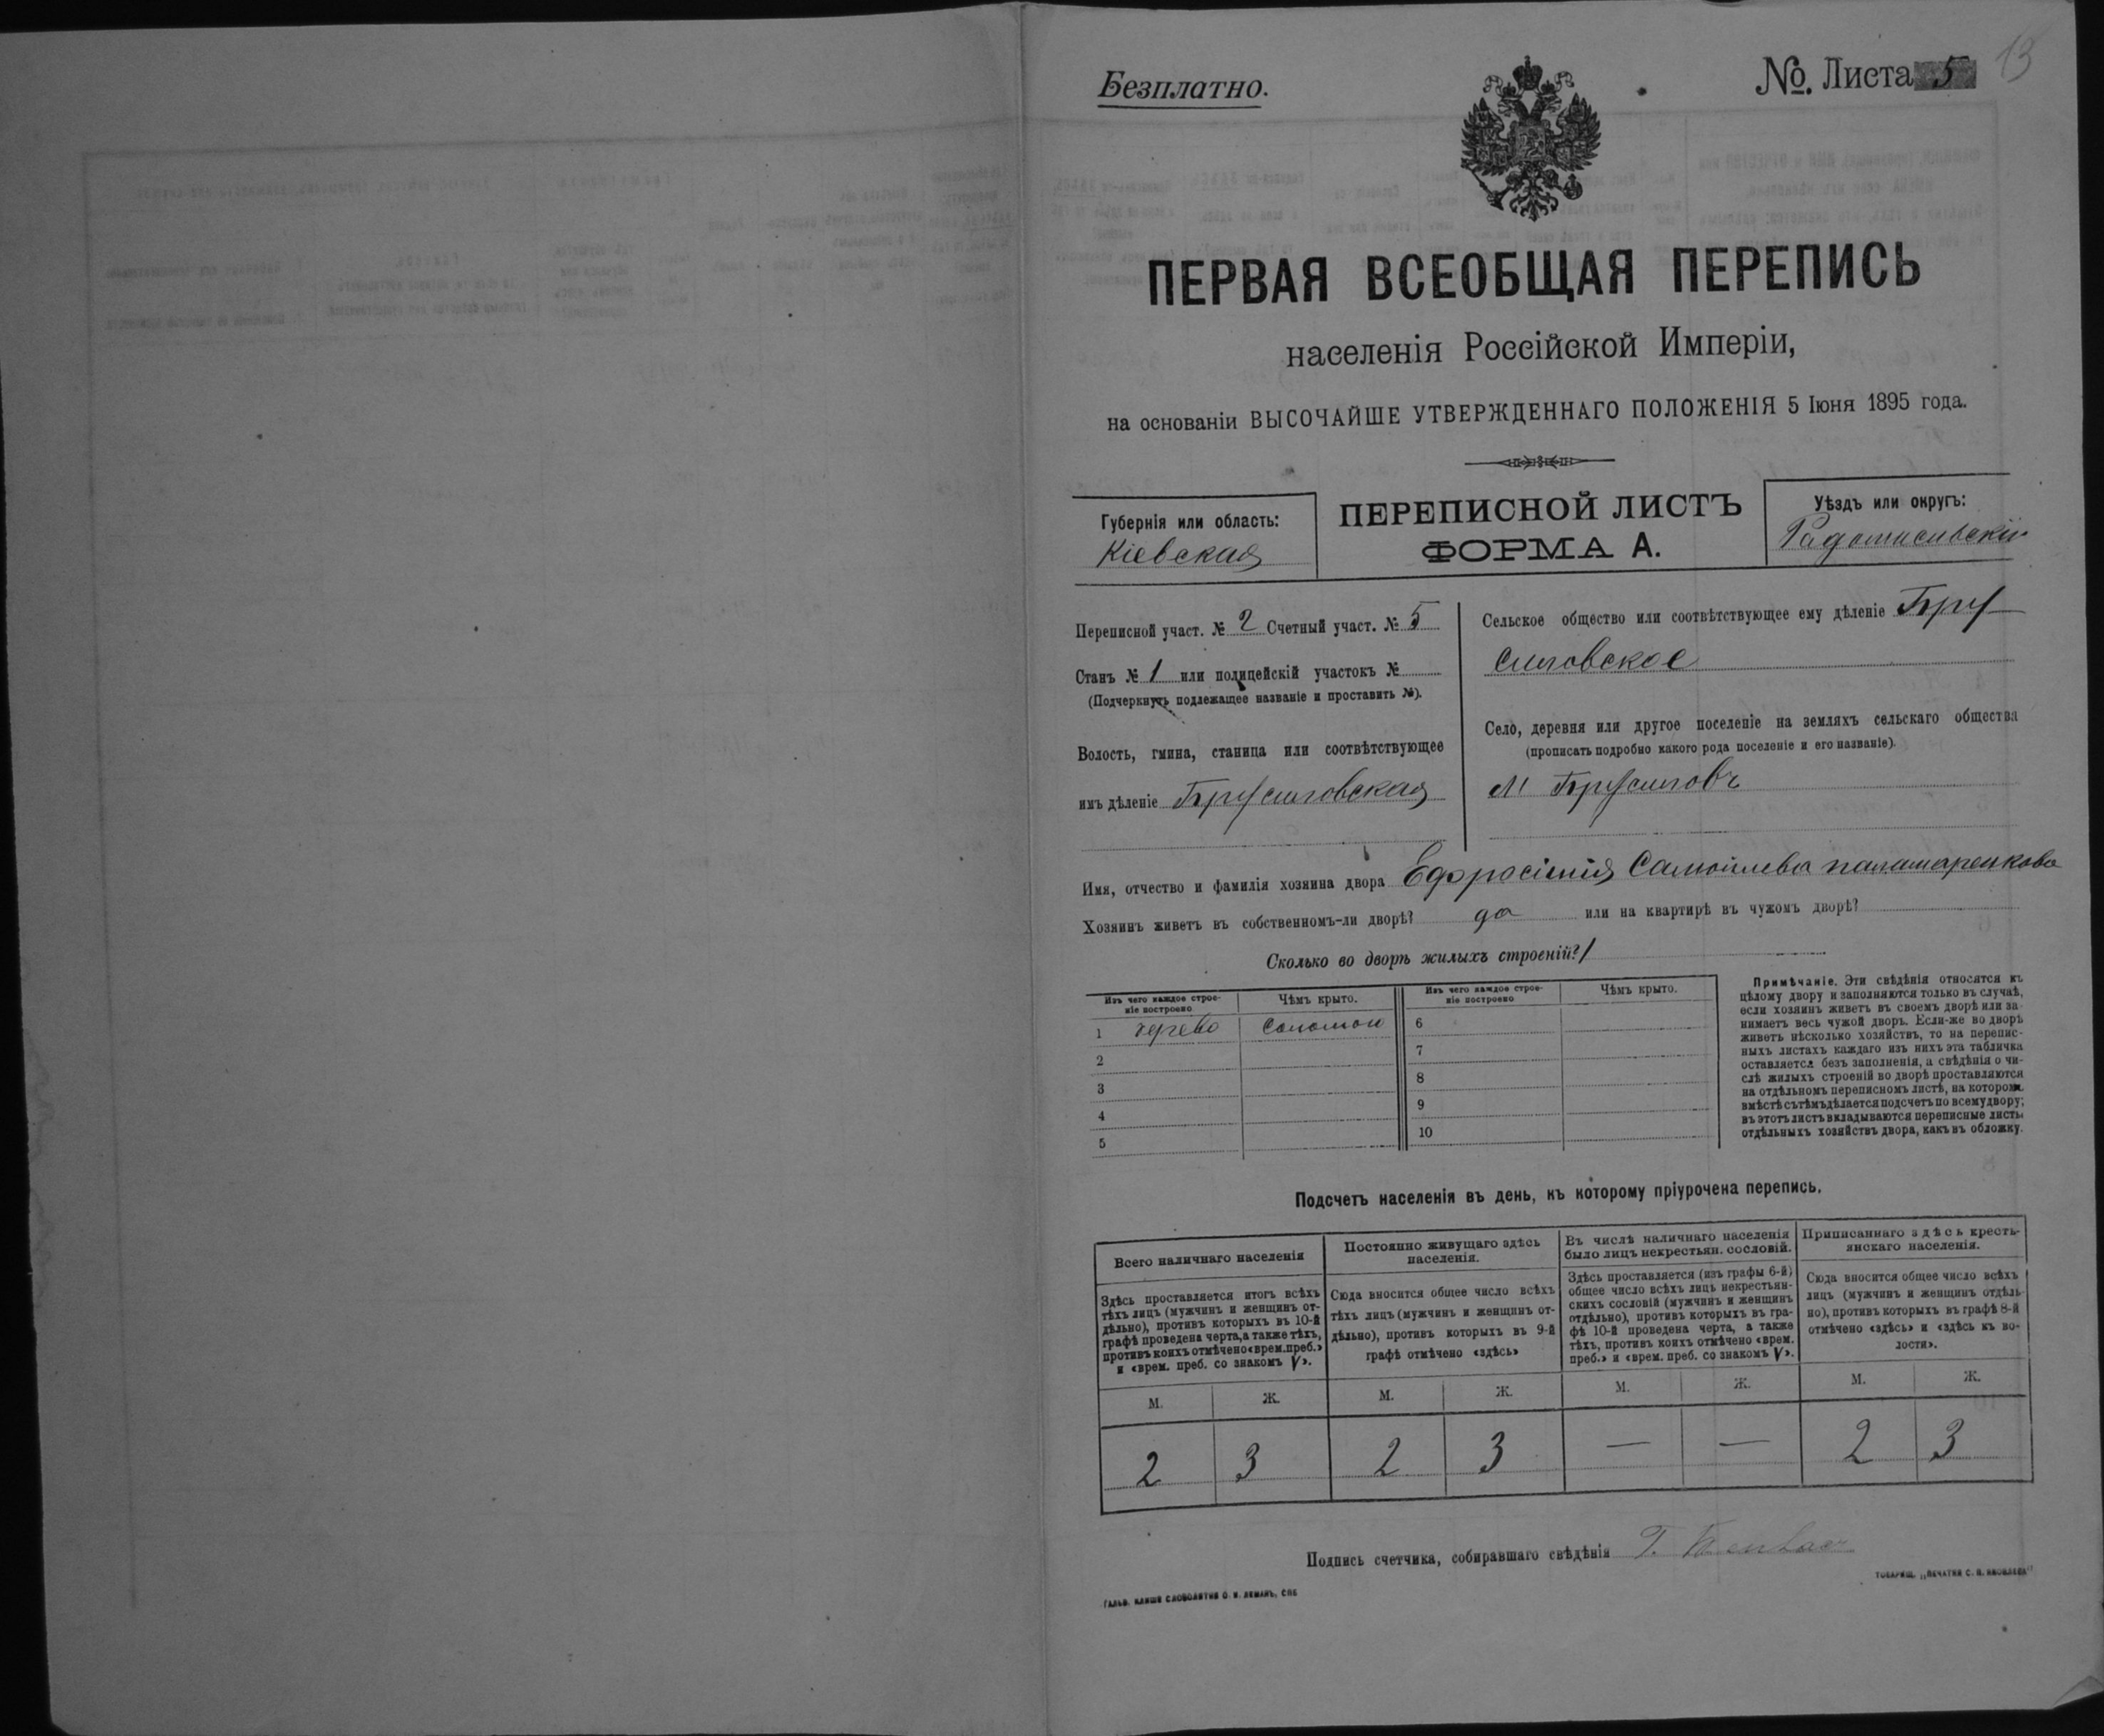 Безплатно.
№. Листа 5
13
ПЕРВАЯ ВСЕОБЩАЯ ПЕРЕПИСЬ
населенія Россійской Имперіи,
на основаніи ВЫСОЧАЙШЕ УТВЕРЖДЕННАГО ПОЛОЖЕНІЯ 5 Іюня 1895 года.
Губернія или область:
Кіевская
ПЕРЕПИСНОЙ ЛИСТЪ
ФОРМА А.
Уѣздъ или округъ:
Радомысльскій
Переписной участ. № 2 Счетный участ. № 5
Станъ № 1 или полицейскій участокъ №
(Подчеркнуть подлежащее названіе и проставить №).
Волость, гмина, станица или соотвѣтствующее
имъ дѣленіе Брусиловская
Сельское общество или соотвѣтствующее ему дѣленіе Бру
силовское
Село, деревня или другое поселеніе на земляхъ сельскаго общества
(прописать подробно какого рода поселеніе и его названіе).
М Брусиловъ
Имя, отчество и фамилія хозяина двора Ефросинія Самойлева паламаренкова
Хозяинъ живетъ въ собственномъ-ли дворѣ? да или на квартирѣ въ чужомъ дворѣ?
Сколько во дворѣ жилыхъ строеній? 1
Изъ чего каждое строе-
ніе построено
Чѣмъ крыто.
Изъ чего каждое строе-
ніе построено
Чѣмъ крыто.
1 дерево соломою
2
3
4
5
6
7
8
9
10
Примѣчаніе. Эти свѣдѣнія относятся къ
цѣлому двору и заполняются только въ случаѣ,
если хозяинъ живетъ въ своемъ дворѣ или за-
нимаетъ весь чужой дворъ. Если-же во дворѣ
живетъ нѣсколько хозяйствъ, то на перепис-
ныхъ листахъ каждаго изъ нихъ эта табличка
оставляется безъ заполненія, а свѣдѣнія о чи-
слѣ жилыхъ строеній во дворѣ проставляются
на отдѣльномъ переписномъ листѣ, на которомъ
вмѣстѣ съ тѣмъ дѣлается подсчетъ по всему двору;
въ этотъ листъ вкладываются переписные листы
отдѣльныхъ хозяйствъ двора, какъ въ обложку.
Подсчетъ населенія въ день, къ которому пріурочена перепись.
Всего наличнаго населенія
Здѣсь проставляется итогъ всѣхъ
тѣхъ лицъ (мужчинъ и женщинъ от-
дѣльно), противъ которыхъ въ 10-й
графѣ проведена черта, а также тѣхъ,
противъ коихъ отмѣчено «врем. преб.»
и «врем. преб. со знакомъ V».
Постоянно живущаго здѣсь
населенія.
Сюда вносится общее число всѣхъ
тѣхъ лицъ (мужчинъ и женщинъ от-
дѣльно), противъ которыхъ въ 9-й
графѣ отмѣчено «здѣсь»
Въ числѣ наличнаго населенія
было лицъ некрестьян. сословій.
Здѣсь проставляется (изъ графы 6-й)
общее число всѣхъ лицъ некрестьян-
скихъ сословій (мужчинъ и женщинъ
отдѣльно), противъ которыхъ въ гра-
фѣ 10-й проведена черта, а также
тѣхъ, противъ коихъ отмѣчено «врем.
преб.» и «врем. преб. со знакомъ V».
Приписаннаго здѣсь кресть-
янскаго населенія.
Сюда вносится общее число всѣхъ
лицъ (мужчинъ и женщинъ отдѣль-
но), противъ которыхъ въ графѣ 8-й
отмѣчено «здѣсь» и «здѣсь къ во-
лости».
М. Ж. М. Ж. М. Ж. М. Ж.
2 3 2 3 — — 2 3
Подпись счетчика, собиравшаго свѣдѣнія Г.
ГАЛЬВ. КЛИШЕ СЛОВОЛИТНИ О. И. ЛЕМАНЪ, СПБ
ТОВАРИЩ. „ПЕЧАТНЯ С. П. ЯКОВЛЕВА"